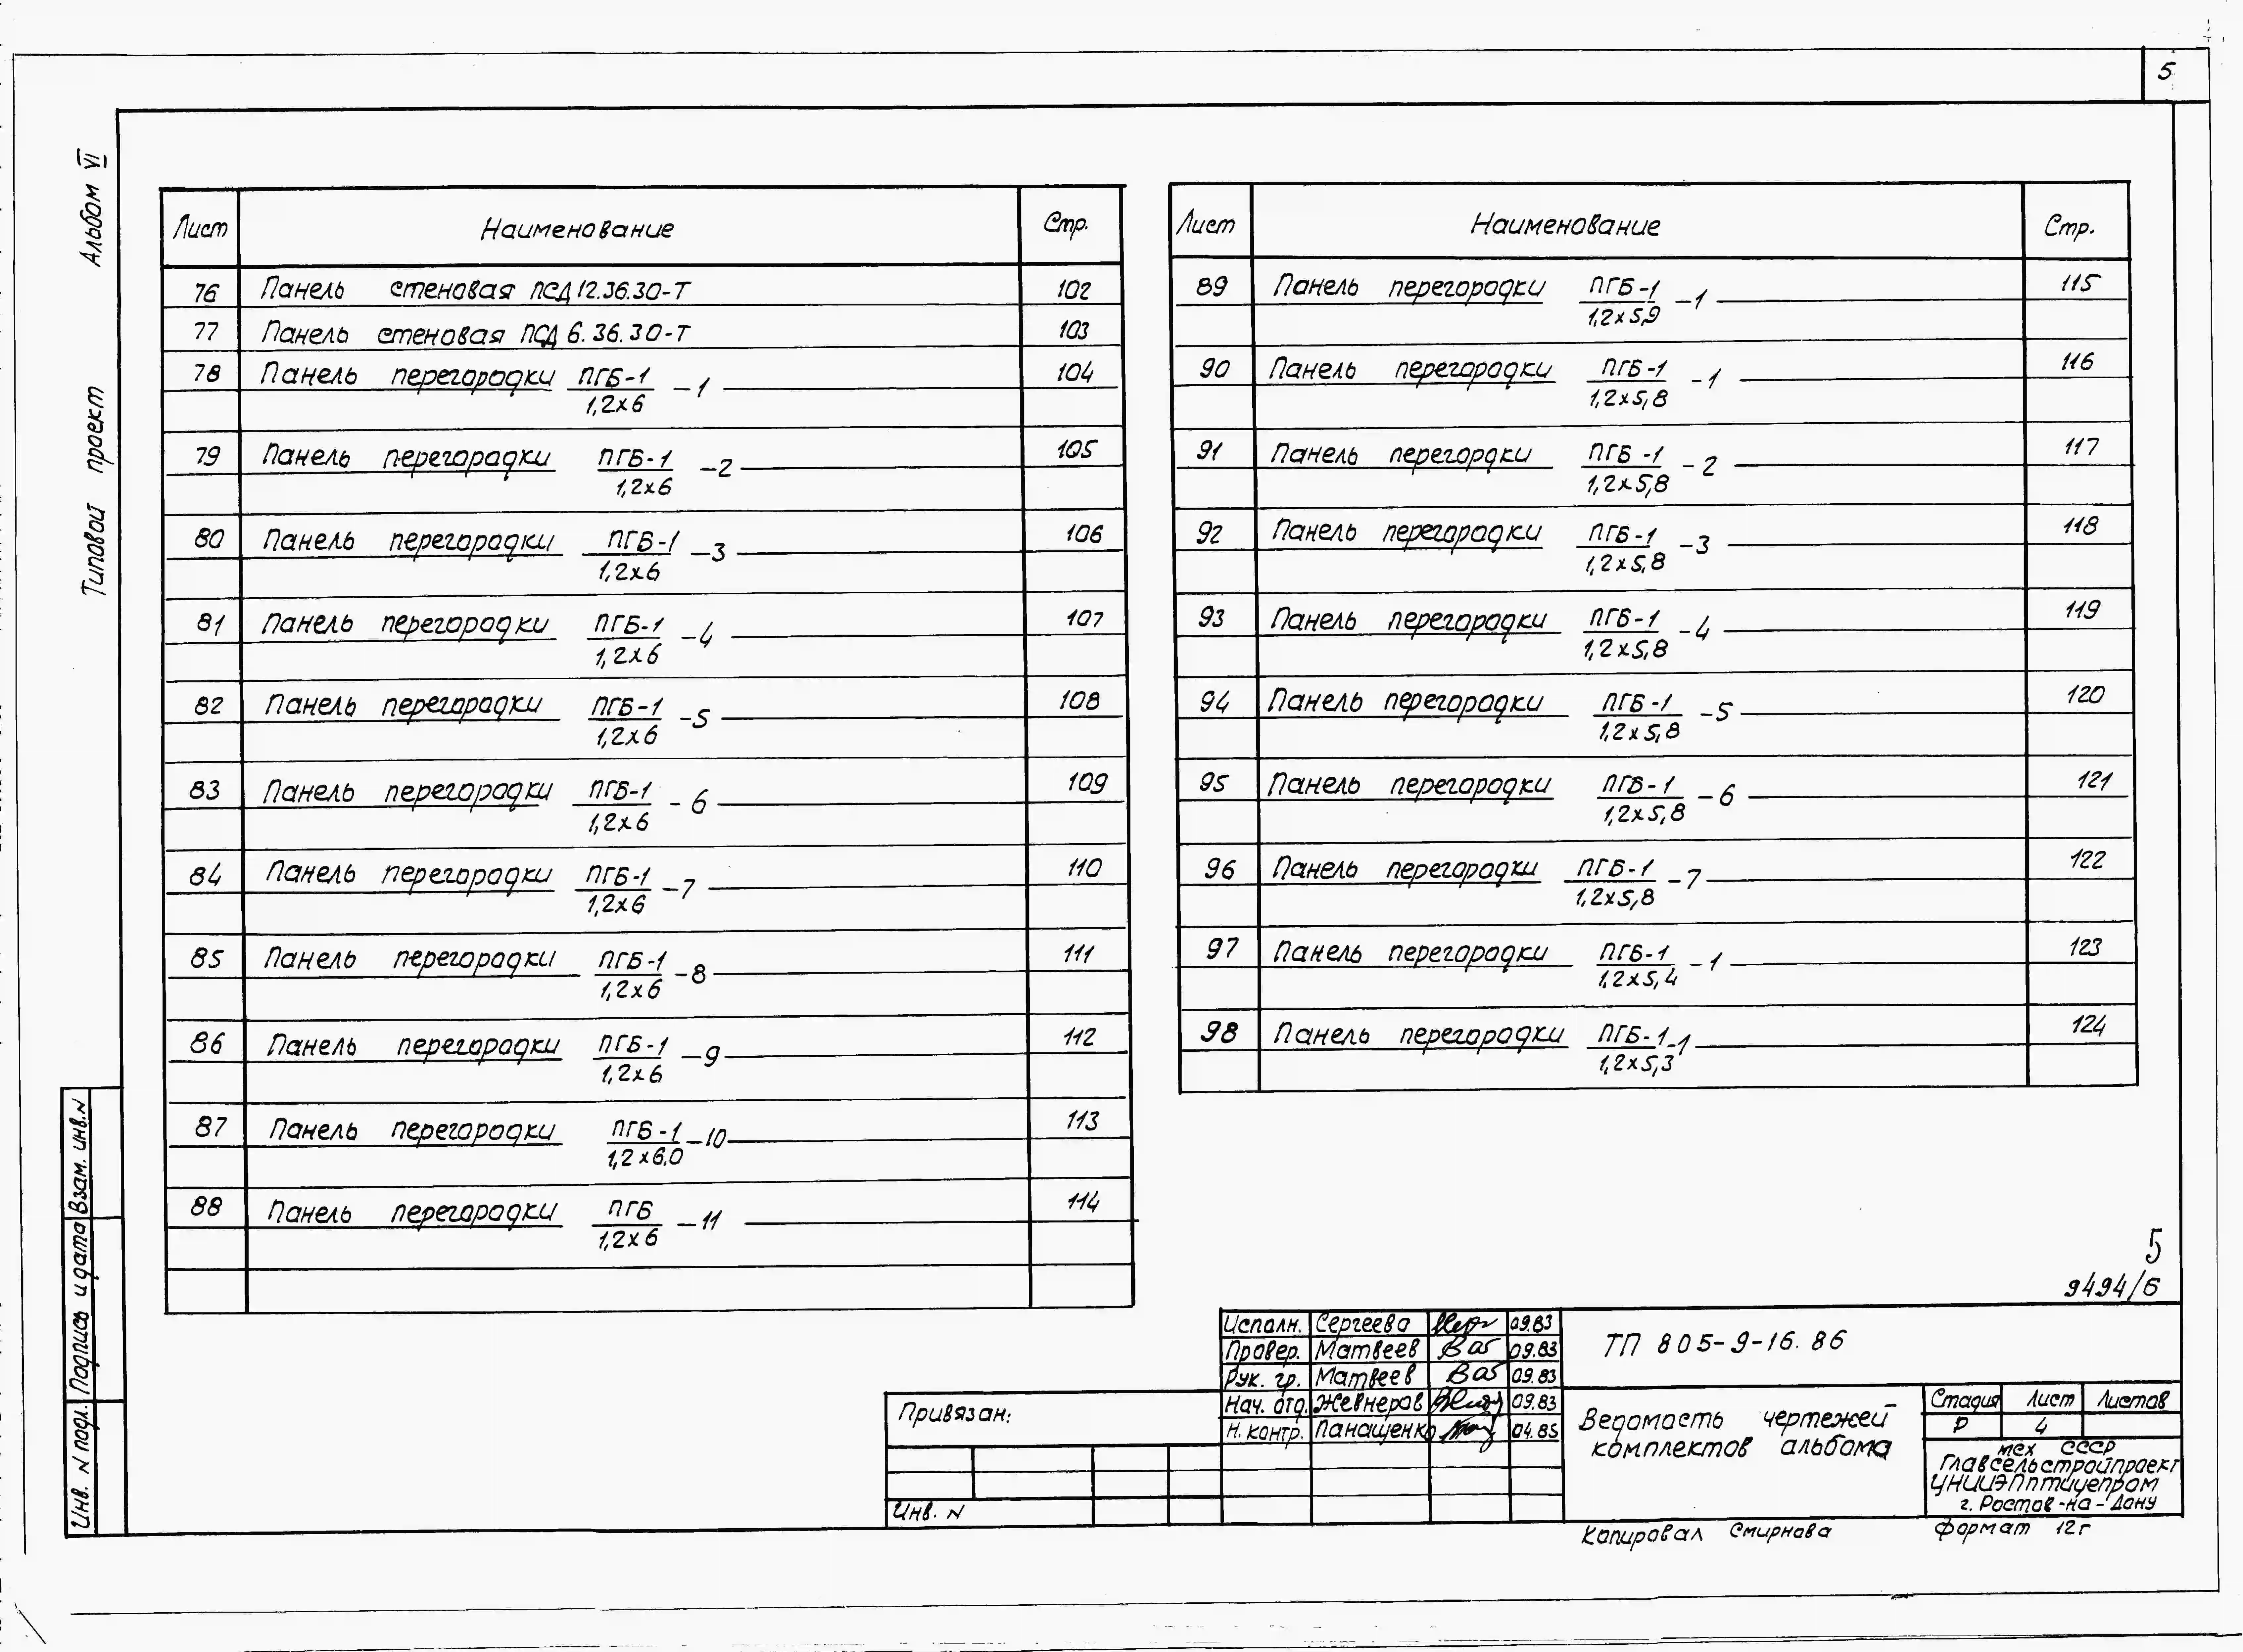 5
Альбом VI
Типовой проект
Лист Наименование Стр.
76 Панель стеновая ПСД 12.36.30-Т 102
77 Панель стеновая ПСД 6.36.30-Т 103
78 Панель перегородки ПГБ-1 -1 104
1,2х6
79 Панель перегородки ПГБ-1 -2 105
1,2х6
80 Панель перегородки ПГБ-1 -3 106
1,2х6
81 Панель перегородки ПГБ-1 -4 107
1,2х6
82 Панель перегородки ПГБ-1 -5 108
1,2х6
83 Панель перегородки ПГБ-1 -6 109
1,2х6
84 Панель перегородки ПГБ-1 -7 110
1,2х6
85 Панель перегородки ПГБ-1 -8 111
1,2х6
86 Панель перегородки ПГБ-1 -9 112
1,2х6
87 Панель перегородки ПГБ-1 -10 113
1,2х6.0
88 Панель перегородки ПГБ -11 114
1,2х6
Лист Наименование Стр.
89 Панель перегородки ПГБ-1 -1 115
1,2х5,9
90 Панель перегородки ПГБ-1 -1 116
1,2х5,8
91 Панель перегордки ПГБ-1 -2 117
1,2х5,8
92 Панель перегородки ПГБ-1 -3 118
1,2х5,8
93 Панель перегородки ПГБ-1 -4 119
1,2х5,8
94 Панель перегородки ПГБ-1 -5 120
1,2х5,8
95 Панель перегородки ПГБ-1 -6 121
1,2х5,8
96 Панель перегородки ПГБ-1 -7 122
1,2х5,8
97 Панель перегородки ПГБ-1 -1 123
1,2х5,4
98 Панель перегородки ПГБ-1 -1 124
1,2х5,3
5
9494/6
Исполн. Сергеева 09.83
Провер. Матвеев 09.83
Рук. гр. Матвеев 09.83
Нач. отд. Жевнеров 09.83
Н. контр. Панащенко 04.85
ТП 805-9-16.86
Ведомость чертежей
комплектов альбома
Стадия Лист Листов
Р 4
мсх СССР
Главсельстройпроект
ЦНИИЭПптицепром
г. Ростов-на-Дону
Привязан:
Инв. N
Копировал Смирнова формат 12г
Взам. инв. N
Подпись и дата
Инв. N подл.